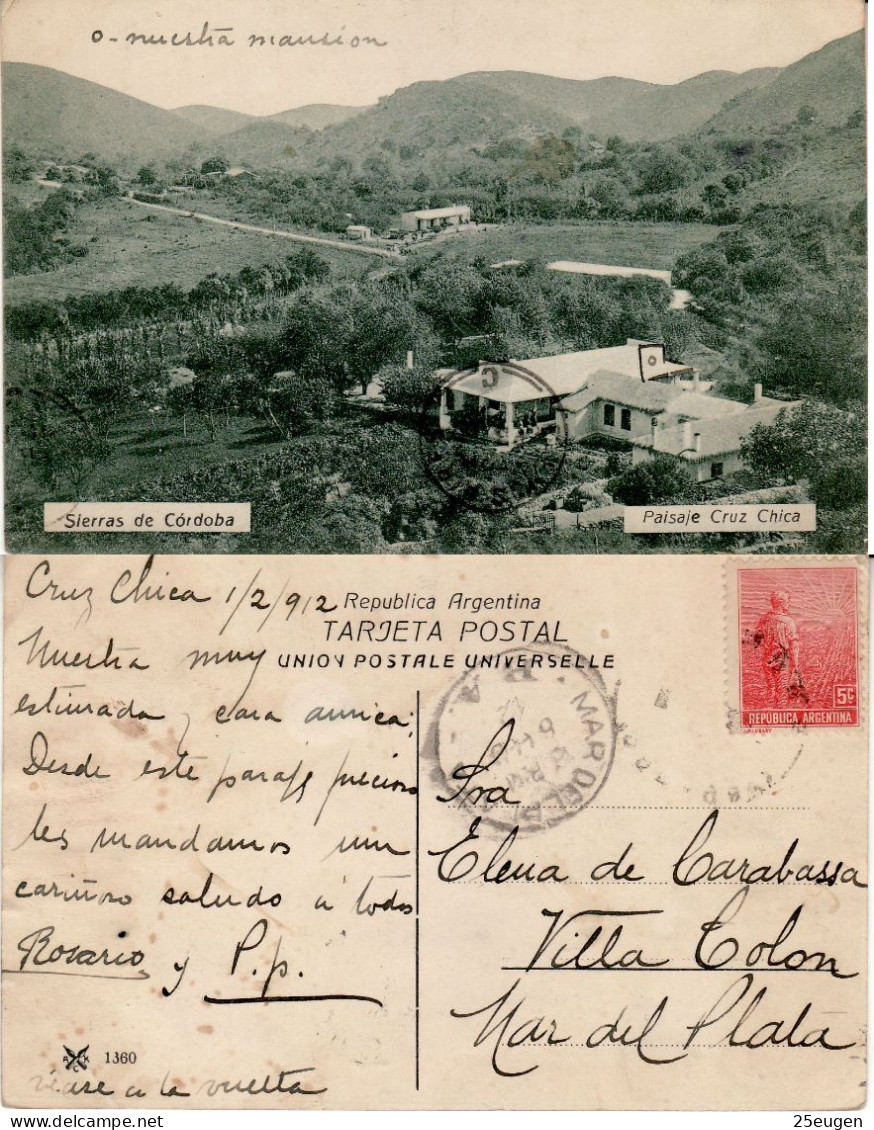 o - nuestra mansión
Sierras de Córdoba
Paisaje Cruz Chica
Cruz Chica 1/2/912
Republica Argentina
TARJETA POSTAL
UNION POSTALE UNIVERSELLE
Nuestra muy
estimada y cara amiga:
Desde este paraje precioso
les mandamos un
cariñoso saludo a todos
Rosario y P.p.
1360
véase a la vuelta
5c
REPUBLICA ARGENTINA
MAR DEL
Sra
Elena de Carabassa
Villa Colon
Mar del Plata
25eugen
delcampe.net